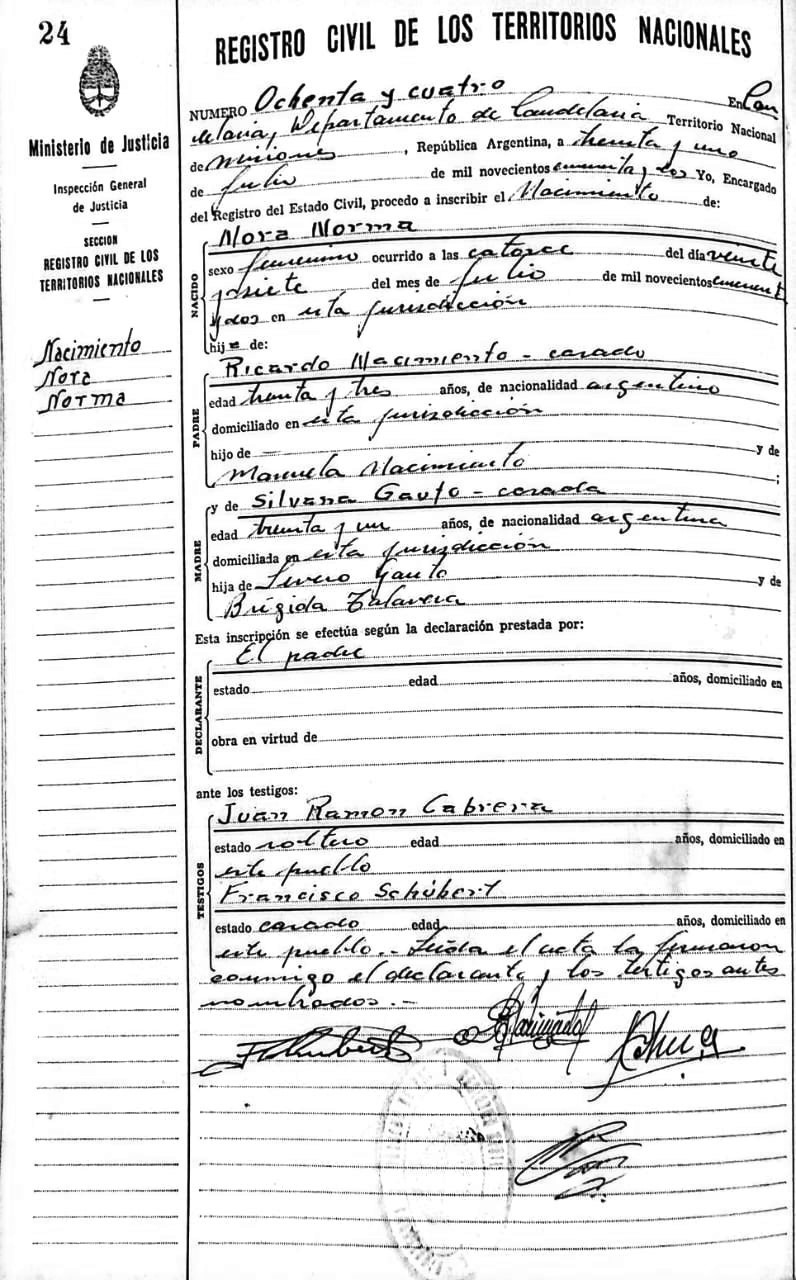 24
REGISTRO CIVIL DE LOS TERRITORIOS NACIONALES
Ministerio de Justicia
Inspección General
de Justicia
SECCION
REGISTRO CIVIL DE LOS
TERRITORIOS NACIONALES
Nacimiento
Nora
Norma
NUMERO Ochenta y cuatro En Can
delaria, Departamento de Candelaria Territorio Nacional
de Misiones, República Argentina, a treinta y uno
de Julio de mil novecientos cincuenta y dos Yo, Encargado
del Registro del Estado Civil, procedo a inscribir el Nacimiento de:
NACIDO
Nora Norma
sexo femenino ocurrido a las catorce del día veinte
y siete del mes de Julio de mil novecientos cincuenta
y dos en esta jurisdicción
hija de:
PADRE
Ricardo Nacimiento - casado
edad treinta y tres años, de nacionalidad argentino
domiciliado en esta jurisdicción
hijo de — y de
Manuela Nacimiento ;
MADRE
y de Silvana Gauto - casada
edad treinta y un años, de nacionalidad argentina
domiciliada en esta jurisdicción
hija de Severo Gauto y de
Brígida Talavera
Esta inscripción se efectúa según la declaración prestada por:
DECLARANTE
El padre
estado edad años, domiciliado en
obra en virtud de
ante los testigos:
TESTIGOS
Juan Ramon Cabrera
estado soltero edad años, domiciliado en
este pueblo
Francisco Schúbert
estado casado edad años, domiciliado en
este pueblo.- Leída el acta la firmaron
conmigo el declarante y los testigos antes
nombrados.-